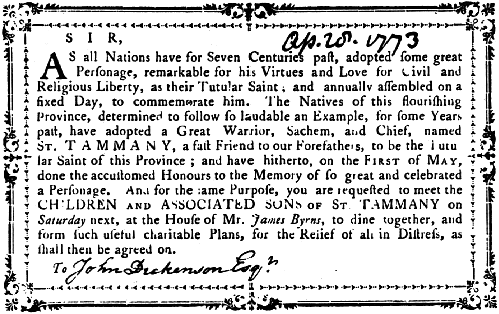 SIR, Ap. 28. 1773
AS all Nations have for Seven Centuries paſt, adopted ſome great
Perſonage, remarkable for his Virtues and Love for Civil and
Religious Liberty, as their Tutular Saint; and annually aſſembled on a
fixed Day, to commemorate him. The Natives of this flouriſhing
Province, determined to follow ſo laudable an Example, for ſome Years
paſt, have adopted a Great Warrior, Sachem, and Chief, named
ST. TAMMANY, a faſt Friend to our Forefathers, to be the Tutu
lar Saint of this Province; and have hitherto, on the FIRST OF MAY,
done the accuſtomed Honours to the Memory of ſo great and celebrated
a Perſonage. And for the ſame Purpoſe, you are requeſted to meet the
CHILDREN AND ASSOCIATED SONS OF ST. TAMMANY on
Saturday next, at the Houſe of Mr. James Byrns, to dine together, and
form ſuch uſeful charitable Plans, for the Relief of all in Diſtreſs, as
ſhall then be agreed on.
To John Dickenson Esqr